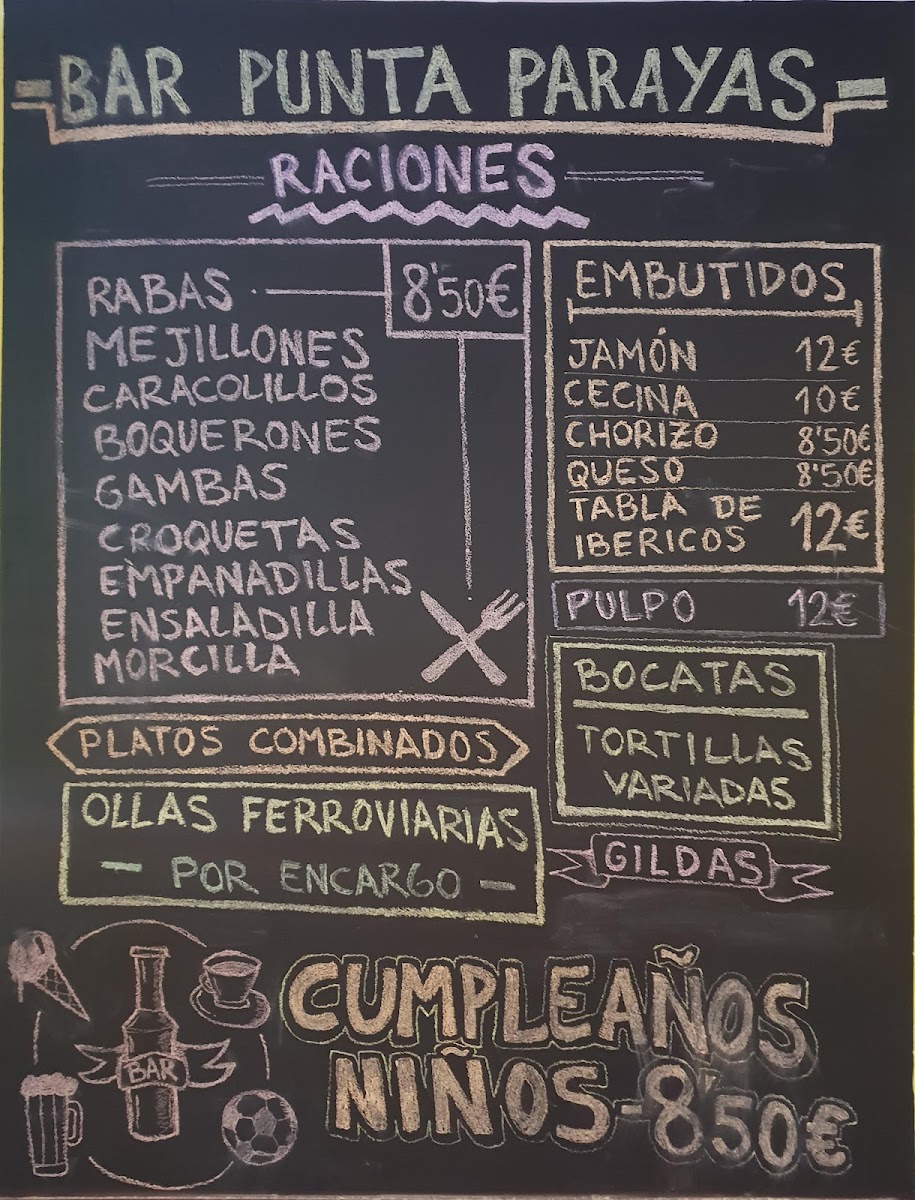 BAR PUNTA PARAYAS
RACIONES
RABAS 8'50€
MEJILLONES
CARACOLILLOS
BOQUERONES
GAMBAS
CROQUETAS
EMPANADILLAS
ENSALADILLA
MORCILLA
EMBUTIDOS
JAMÓN 12€
CECINA 10€
CHORIZO 8'50€
QUESO 8'50€
TABLA DE
IBERICOS 12€
PULPO 12€
BOCATAS
TORTILLAS
VARIADAS
PLATOS COMBINADOS
OLLAS FERROVIARIAS
- POR ENCARGO -
GILDAS
BAR
CUMPLEAÑOS
NIÑOS-8'50€